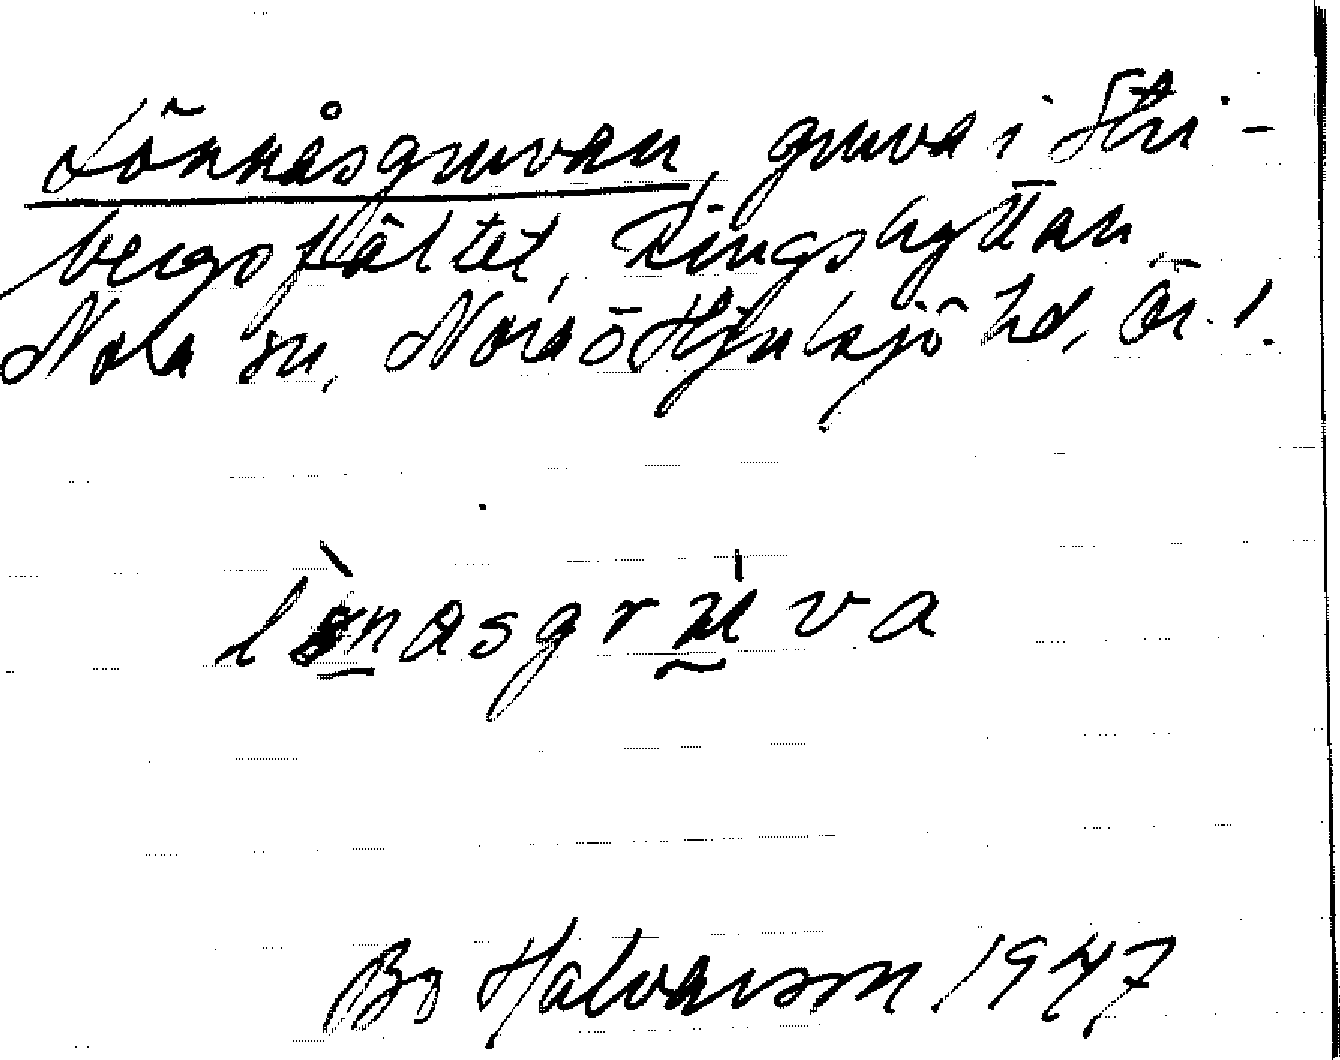 Lönnåsgruvan, gruva i Stri-
bergsfältet, Ringshyttan,
Nora sn, Nora o Hjulsjö hd, Ör. l.
lònasgruva
Bo Halvarson 1947